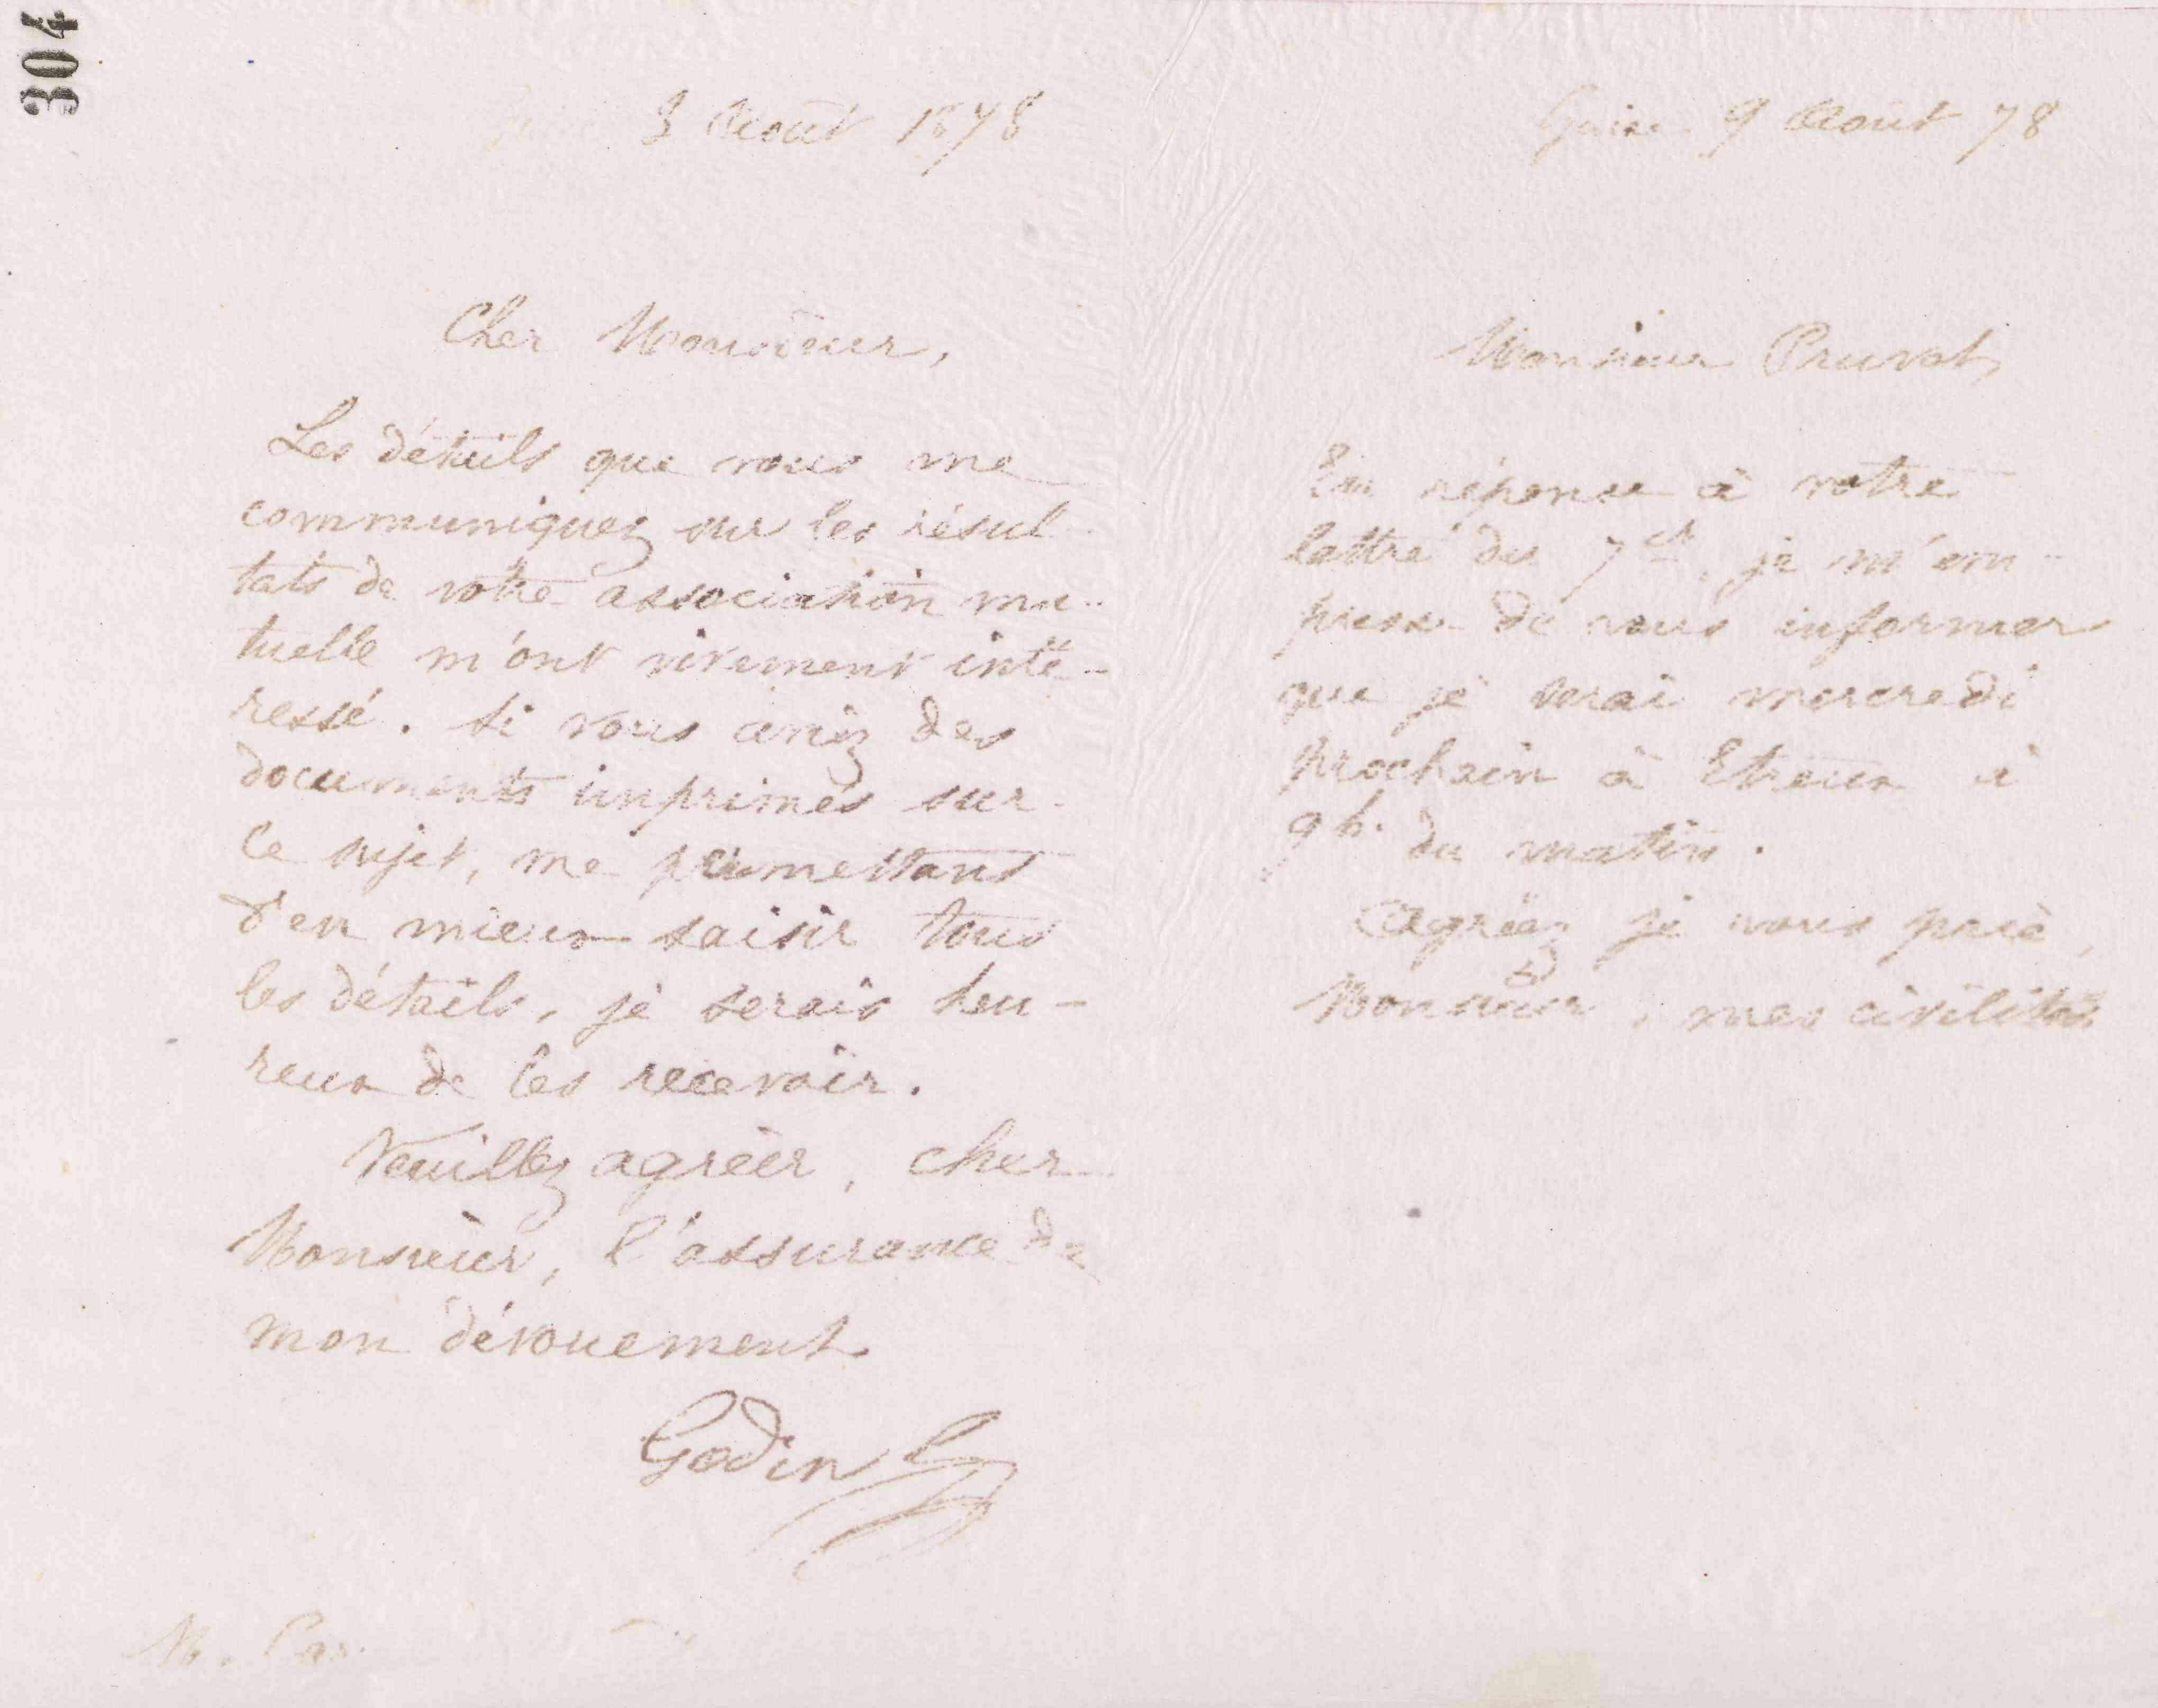 304
3 Août 1878
Cher Monsieur,
Les détails que vous me
communiquez sur les résul
tats de votre association mu-
tuelle m'ont vivement inté-
ressé. Si vous aviez des
documents imprimés sur
ce sujet, me permettant
d'en mieux saisir tous
les détails, je serais heu-
reux de les recevoir.
Veuillez agréer, cher
Monsieur, l'assurance de
mon dévouement
Godin
M.
Guise 9 Août 78
Monsieur Pruvot,
En réponse à votre
lettre du 7 ct, je m'em-
presse de vous informer
que je serai mercredi
prochain à Etreux à
9 h. du matin.
Agréez je vous prie,
Monsieur, mes civilités